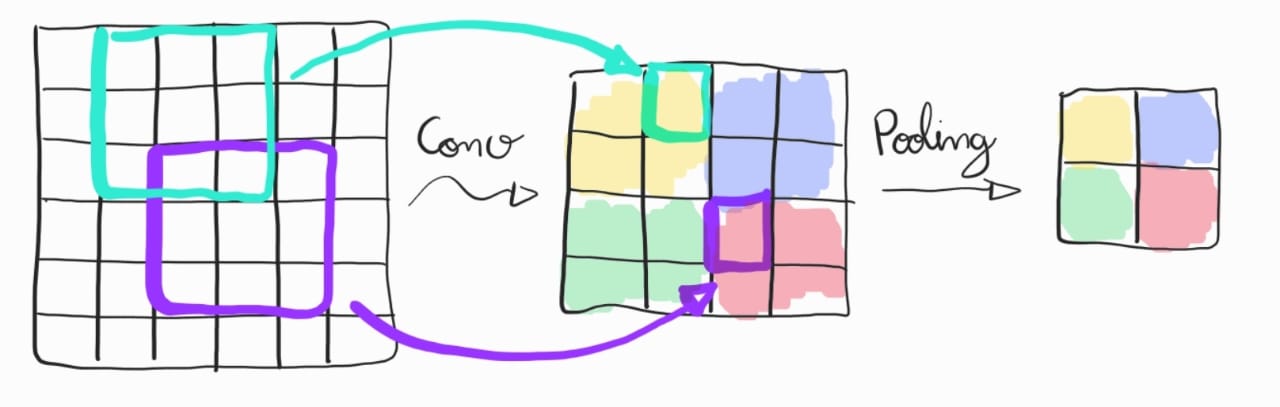 Conv
Pooling